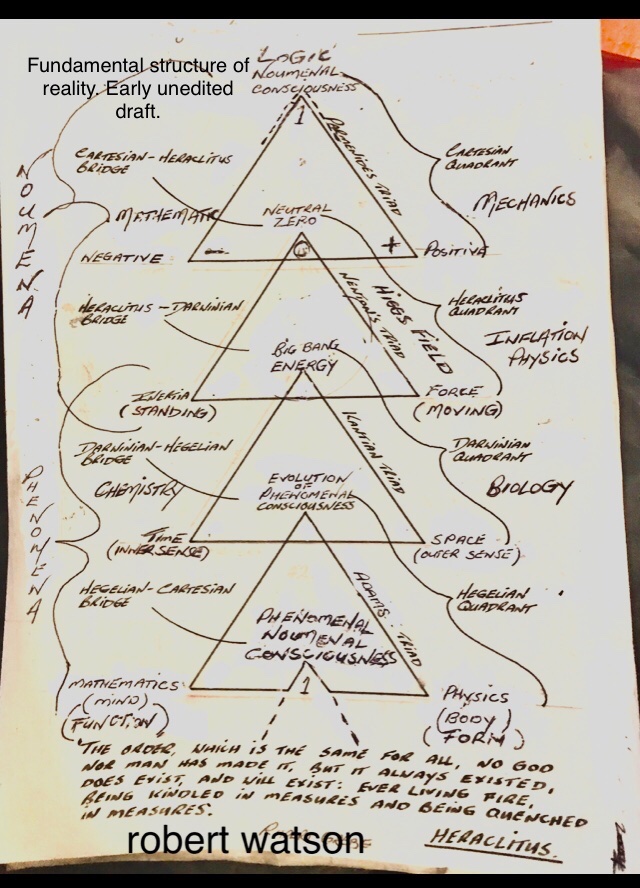 Fundamental structure of
reality. Early unedited
draft.
LOGIC
NOUMENAL
CONSCIOUSNESS
1
PARMENIDES TRIAD
CARTESIAN-HERACLITUS
BRIDGE
CARTESIAN
QUADRANT
NOUMENA
MATHEMATIC
NEUTRAL
ZERO
MECHANICS
NEGATIVE
-
+
POSITIVE
HERACLITUS-DARWINIAN
BRIDGE
NEWTON'S TRIAD
HIGGS FIELD
HERACLITUS
QUADRANT
BIG BANG
ENERGY
INFLATION
PHYSICS
INERTIA
(STANDING)
FORCE
(MOVING)
DARWINIAN-HEGELIAN
BRIDGE
KANTIAN TRIAD
DARWINIAN
QUADRANT
PHENOMENA
CHEMISTRY
EVOLUTION
OF
PHENOMENAL
CONSCIOUSNESS
BIOLOGY
TIME
(INNER SENSE)
SPACE
(OUTER SENSE)
HEGELIAN-CARTESIAN
BRIDGE
ADAMS TRIAD
HEGELIAN
QUADRANT
PHENOMENAL
NOUMENAL
CONSCIOUSNESS
1
MATHEMATICS
(MIND)
(FUNCTION)
PHYSICS
(BODY)
(FORM)
"THE ORDER, WHICH IS THE SAME FOR ALL, NO GOD
NOR MAN HAS MADE IT, BUT IT ALWAYS EXISTED,
DOES EXIST, AND WILL EXIST: EVER LIVING FIRE,
BEING KINDLED IN MEASURES AND BEING QUENCHED
IN MEASURES".
robert watson
HERACLITUS.